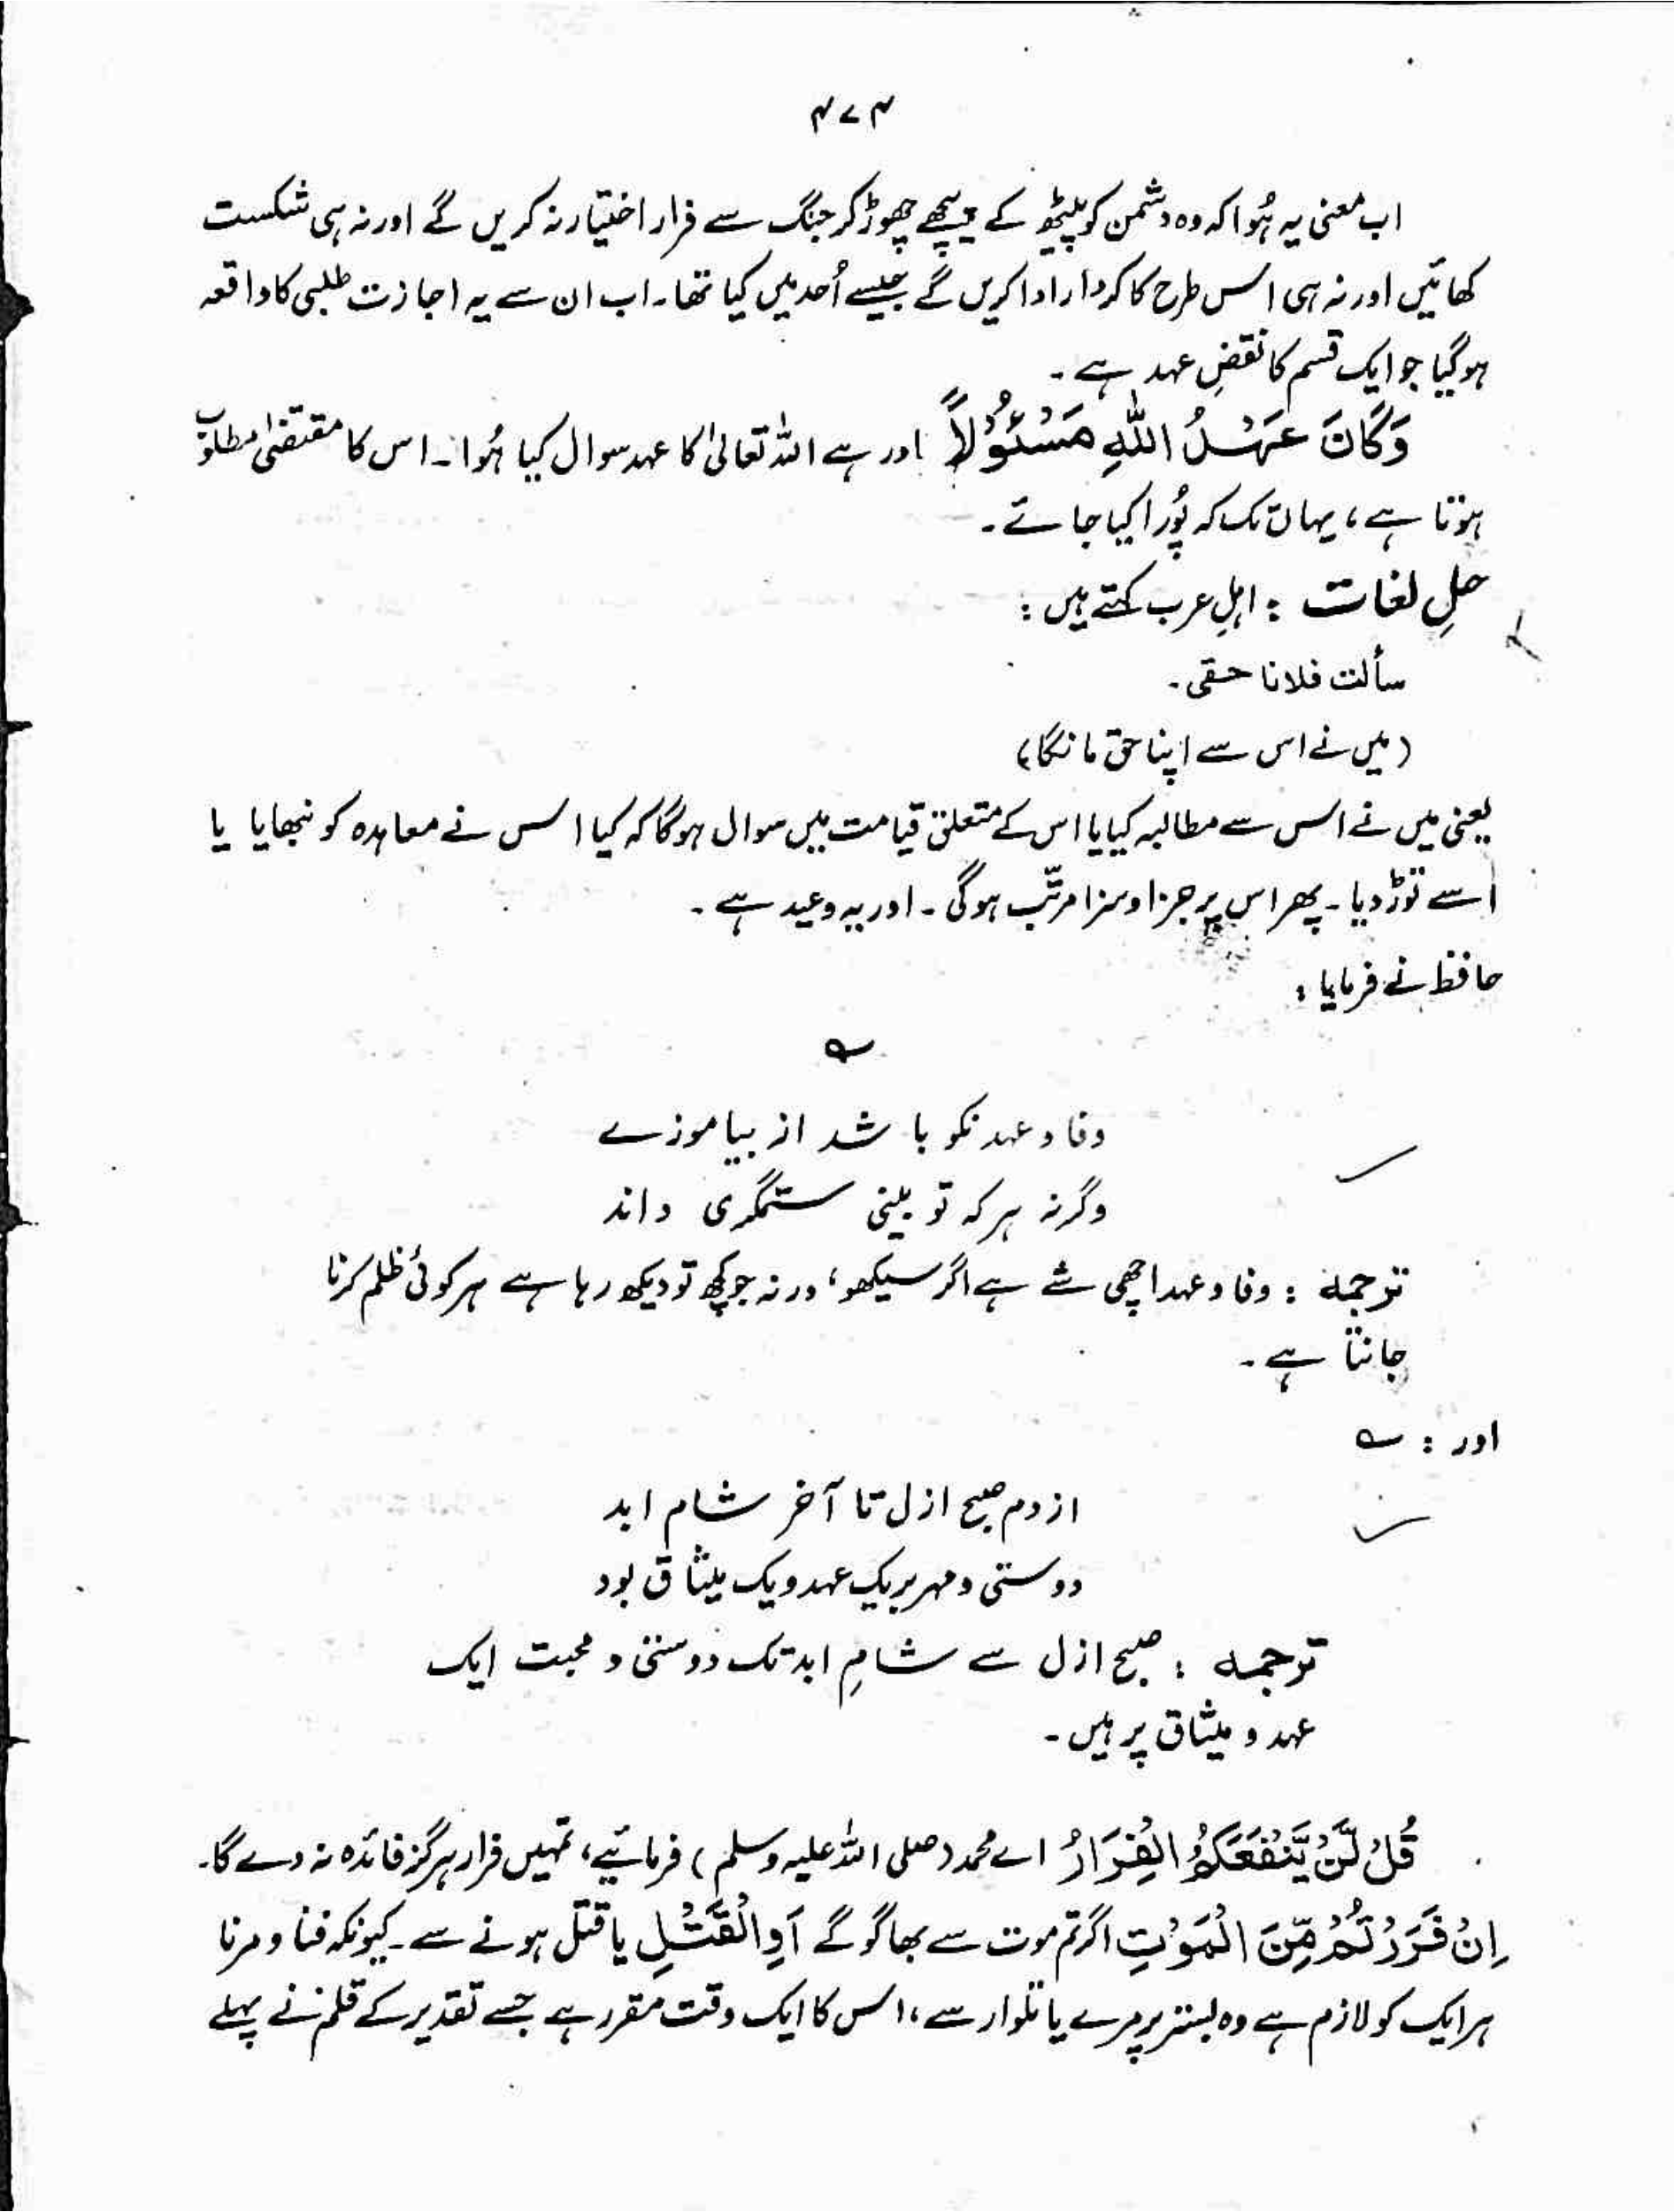 ۴۷۴
اب معنی یہ ہُوا کہ وہ دشمن کو پیٹھ کے پیچھے چھوڑ کر جنگ سے فرار اختیار نہ کریں گے اور نہ ہی شکست
کھائیں اور نہ ہی اس طرح کا کردار ادا کریں گے جیسے اُحد میں کیا تھا۔ اب ان سے یہ اجازت طلبی کا واقعہ
ہوگیا جو ایک قسم کا نقضِ عہد ہے۔
وَكَانَ عَهْدُ اللّٰهِ مَسْئُوْلًا اور ہے اللہ تعالیٰ کا عہد سوال کیا ہُوا۔ اس کا مقتضیٰ مطلوب
ہوتا ہے، یہاں تک کہ پُورا کیا جائے۔
حلِ لغات : اہلِ عرب کہتے ہیں :
سألت فلانا حقی۔
(میں نے اس سے اپنا حق مانگا)
یعنی میں نے اس سے مطالبہ کیا یا اس کے متعلق قیامت میں سوال ہوگا کہ کیا اس نے معاہدہ کو نبھایا یا
اسے توڑ دیا۔ پھر اس پر جزا و سزا مرتّب ہوگی۔ اور یہ وعید ہے۔
حافظ نے فرمایا :
؎
وفا و عہد نکو باشد از بیاموزے
وگرنہ ہر کہ تو بینی ستمگری داند
ترجمہ : وفا و عہد اچھی شے ہے اگر سیکھو، ورنہ جو کچھ تو دیکھ رہا ہے ہر کوئی ظلم کرنا
جانتا ہے۔
اور : ؎
از دم صبح ازل تا آخر شام ابد
دوستی و مہر بریک عہد و یک میثاق بود
ترجمہ : صبح ازل سے شامِ ابد تک دوستی و محبت ایک
عہد و میثاق پر ہیں۔
قُلْ لَّنْ يَّنْفَعَكُمُ الْفِرَارُ اے محمد (صلی اللہ علیہ وسلم) فرمائیے، تمہیں فرار ہرگز فائدہ نہ دے گا۔
اِنْ فَرَرْتُمْ مِّنَ الْمَوْتِ اگر تم موت سے بھاگو گے اَوِ الْقَتْلِ یا قتل ہونے سے۔ کیونکہ فنا و مرنا
ہر ایک کو لازم ہے وہ بستر پر مرے یا تلوار سے، اس کا ایک وقت مقرر ہے جسے تقدیر کے قلم نے پہلے